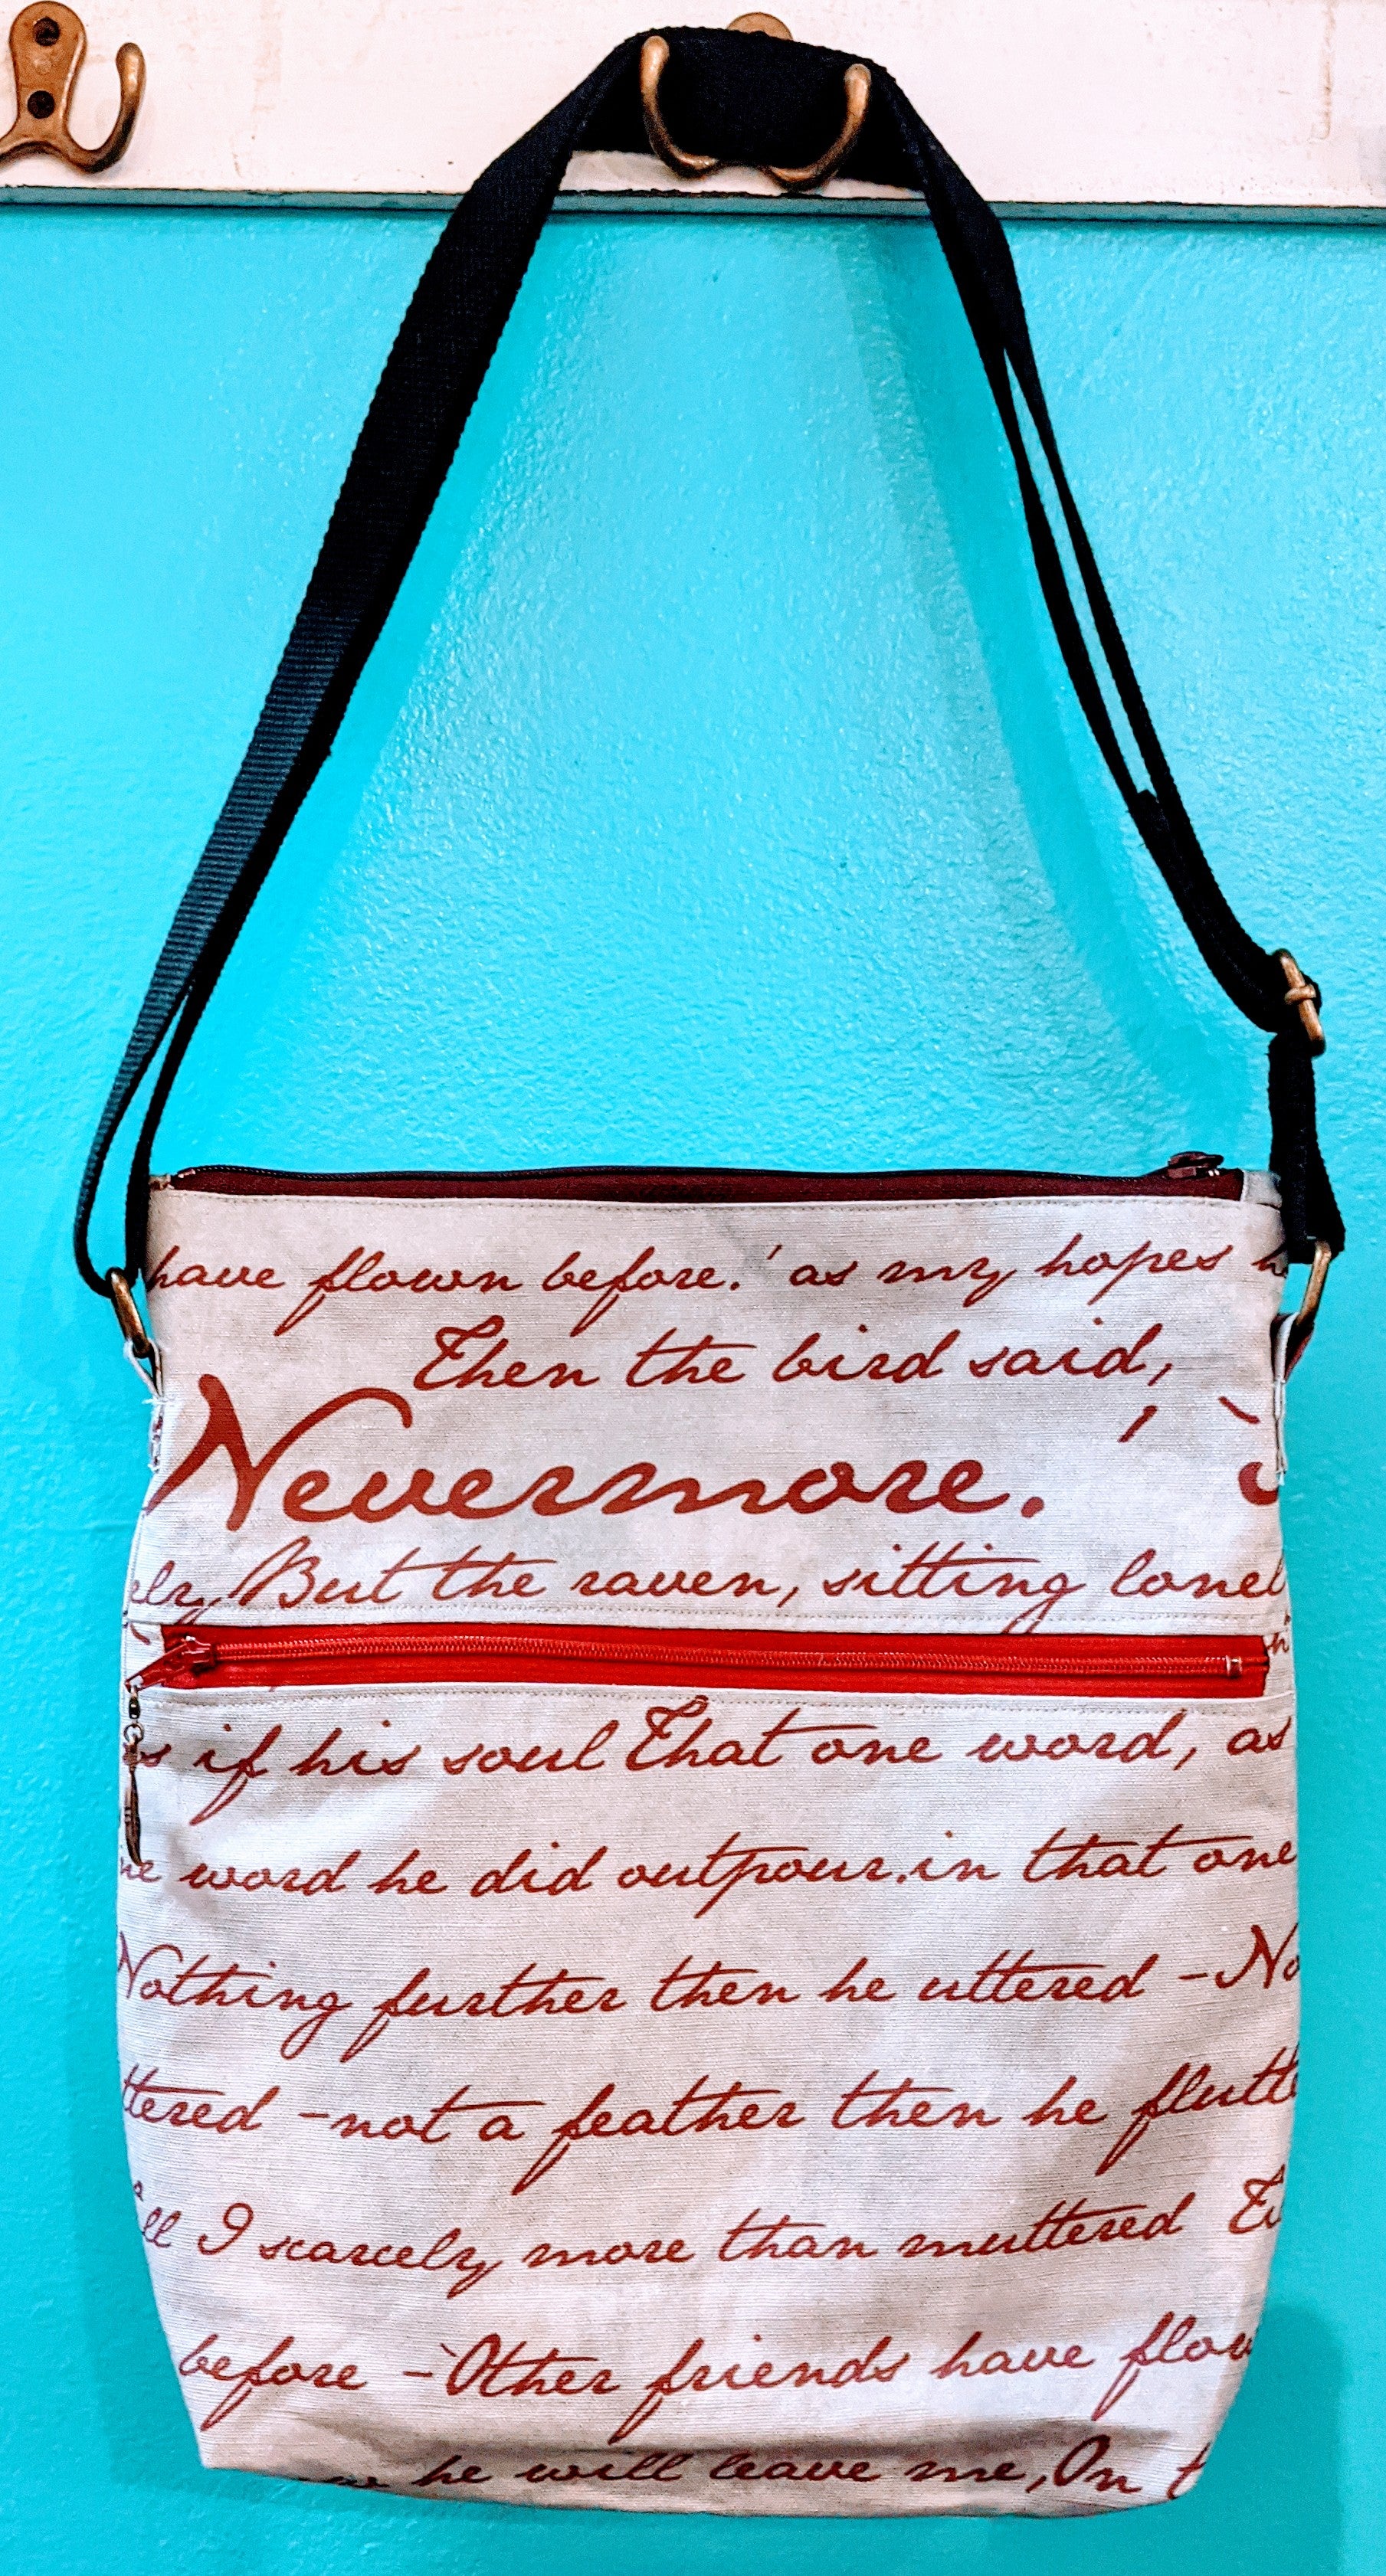 have flown before.' as my hopes
Then the bird said,
'
Nevermore.
But the raven, sitting lonel
s if his soul That one word, as
ne word he did outpour. in that one
Nothing further then he uttered - No
ttered - not a feather then he flutte
ll I scarcely more than muttered Ti
before - 'Other friends have flow
he will leave me, On t